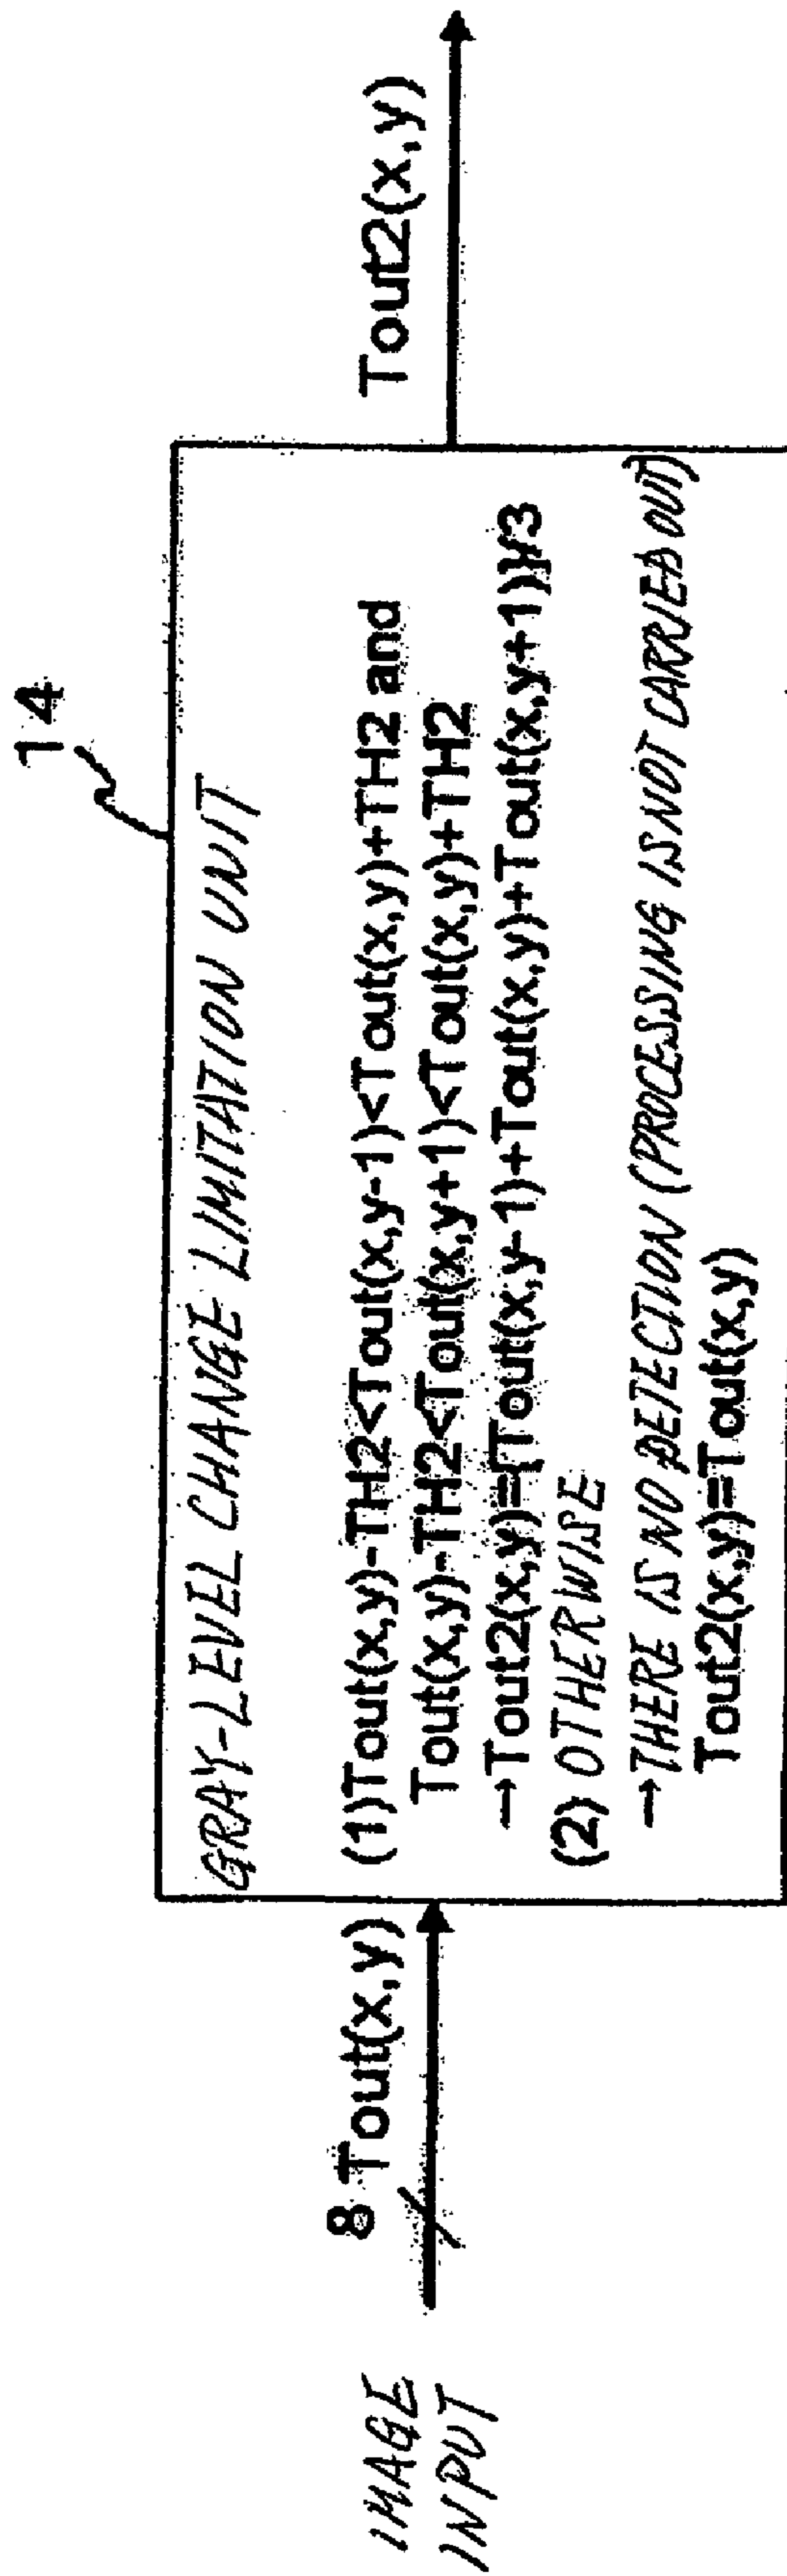 14
IMAGE
INPUT
8 Tout(x,y)
GRAY-LEVEL CHANGE LIMITATION UNIT
(1)Tout(x,y)-TH2<Tout(x,y-1)<Tout(x,y)+TH2 and
Tout(x,y)-TH2<Tout(x,y+1)<Tout(x,y)+TH2
→Tout2(x,y)={Tout(x,y-1)+Tout(x,y)+Tout(x,y+1)}/3
(2) OTHERWISE
→THERE IS NO DETECTION (PROCESSING IS NOT CARRIED OUT)
Tout2(x,y)=Tout(x,y)
Tout2(x,y)